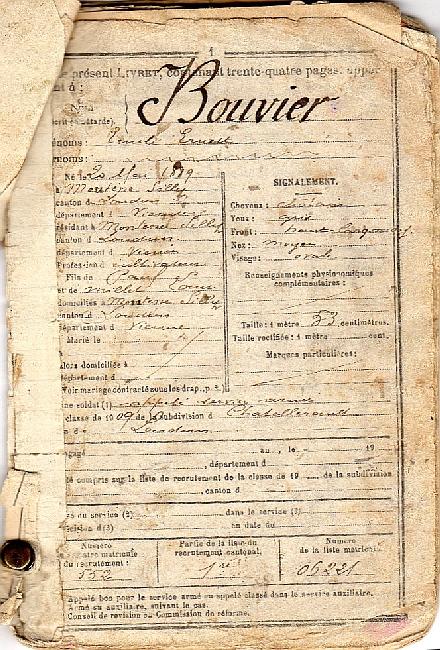 1
présent LIVRET, contenant trente-quatre pages, appar
nt à :
Nom
Bouvier
énoms : Emile Ernest
rnoms :
Né le 20 Mai 1889
à Monterre Silly
canton d Loudun
département d Vienne
résidant à Monterre Silly
canton d Loudun
département d Vienne
Profession d cultivateur
Fils de
et de
domiciliés à Monterre Silly
canton d Loudun
département d Vienne
Marié le
alors domiciliée à
département d
Voir mariage contracté sous les drap., p. 3.
SIGNALEMENT.
Cheveux : châtains
Yeux : gris
Front :
Nez : moyen
Visage : ovale
Renseignements physionomiques
complémentaires :
Taille : 1 mètre 53 centimètres.
Taille rectifiée : 1 mètre cent.
Marques particulières :
ne soldat (1) appelé service armé
classe de 1909 de la subdivision d Chatellerault
n d Loudun
gagé au, le 19
, département d
té compris sur la liste de recrutement de la classe de 19 de la subdivision
, canton d
du service (2) dans le service (3)
écision d(3) en date du
Numéro
matricule
du recrutement :
552
Partie de la liste du
recrutement cantonal.
1re
Numéro
de la liste matricule
06221
Appelé bon pour le service armé ou appelé classé dans le service auxiliaire.
Armé ou auxiliaire, suivant le cas.
Conseil de revision ou Commission de réforme.